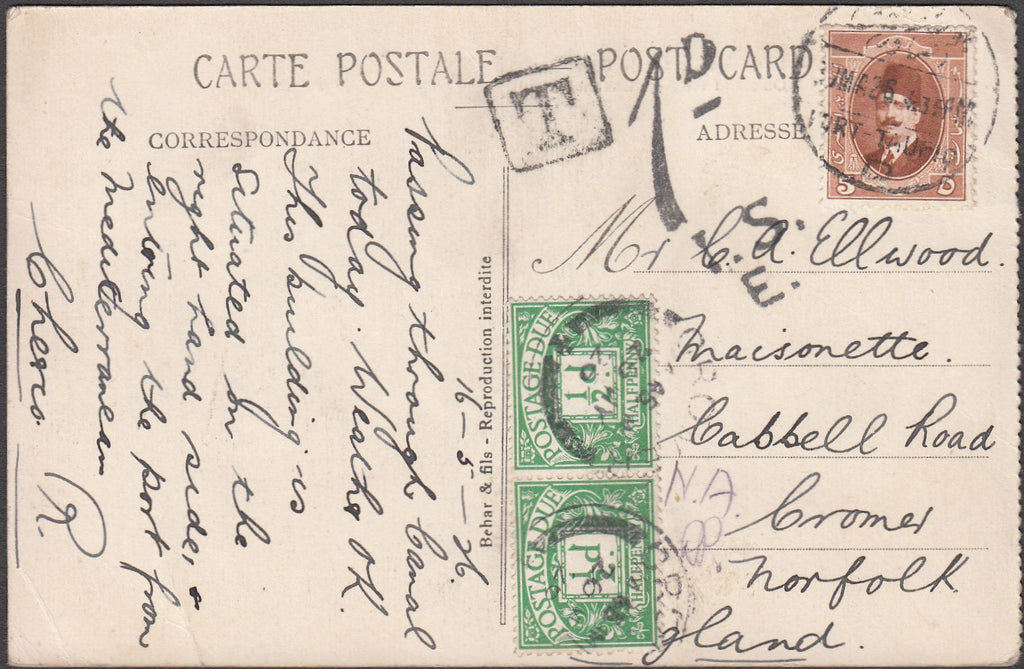 CARTE POSTALE
POST CARD
CORRESPONDANCE
ADRESSE
T
1D
I.S.E.
16-5-26.
Passing through Canal
today. Weather O.K.
This building is
Situated on the
right hand side, +
entering the port from
the Mediterranean
Cheerio.
R.
Behar & fils - Reproduction interdite
Mr C. A. Ellwood.
Maisonette.
Cabbell Road
Cromer
Norfolk
gland.
POSTAGE DUE
½D
HALFPENNY
POSTAGE DUE
½D
HALFPENNY
N.A.
PORT-TAUFIQ
٥
٥